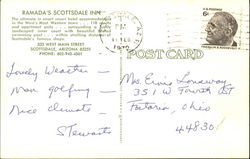 RAMADA'S SCOTTSDALE INN
The ultimate in smart resort hotel accommodations
in the West's Most Western town
and apartment units surrounding a
landscaped inner court with beautiful
swimming pool within strolling distance of
Scottsdale's famous shops.
325 WEST MAIN STREET
SCOTTSDALE, ARIZONA 85251
PHONE: 602-945-
1970
6¢
POST CARD
Lovely Weather -
Man golfing -
Nice climate -
Stewarts
Mrs. Ernie
351 W Fourth ST
Fostoria, Ohio
44830